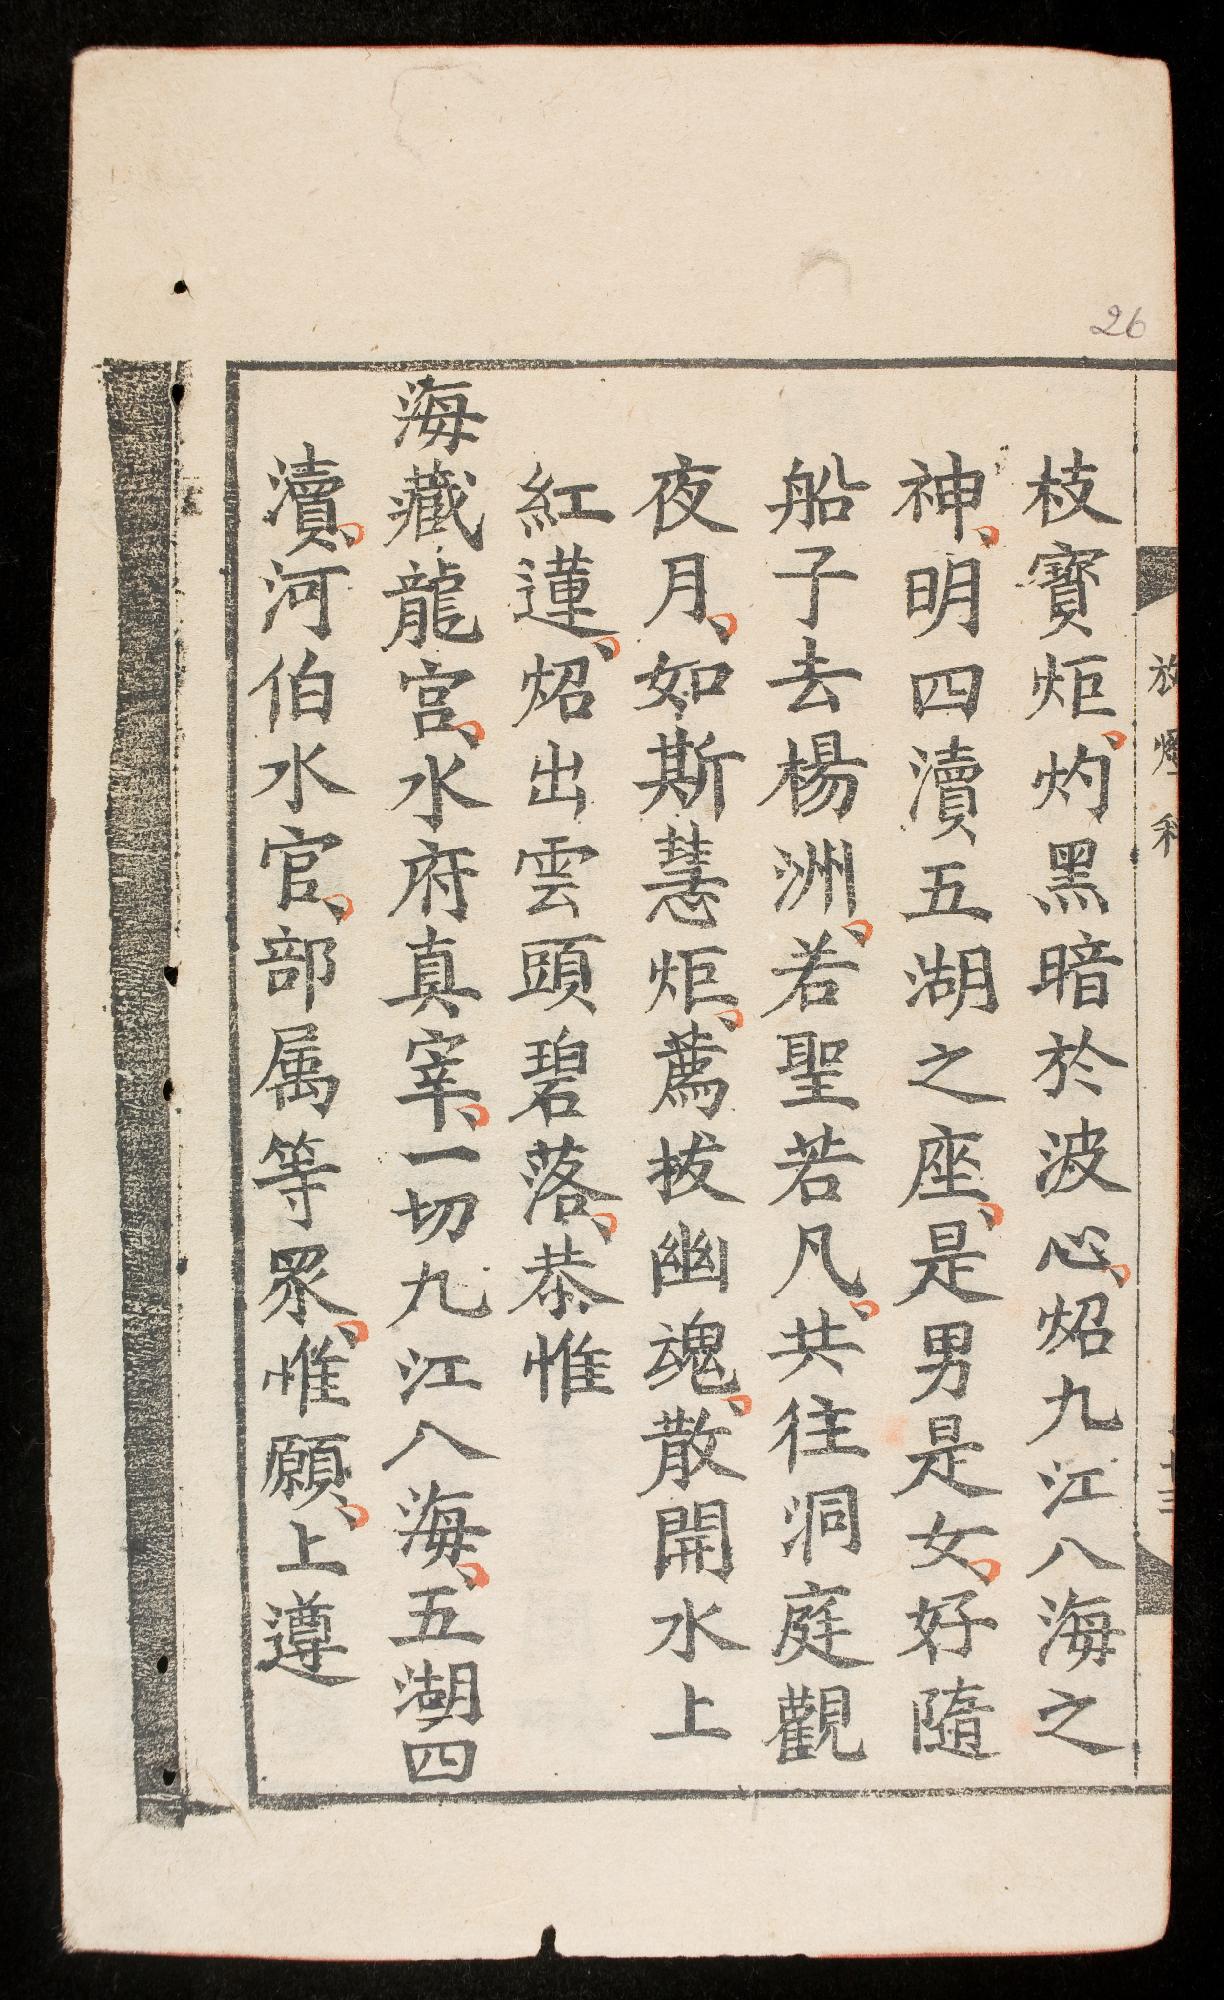 26
枝寶炬灼黑暗於波心炤九江八海之
神明四瀆五湖之座是男是女好隨
船子去楊洲若聖若凡共往洞庭觀
夜月如斯慧炬薦拔幽魂散開水上
紅蓮炤出雲頭碧落恭惟
海藏龍宮水府真宰一切九江八海五湖四
瀆河伯水官部属等眾惟願上遵
放燈科